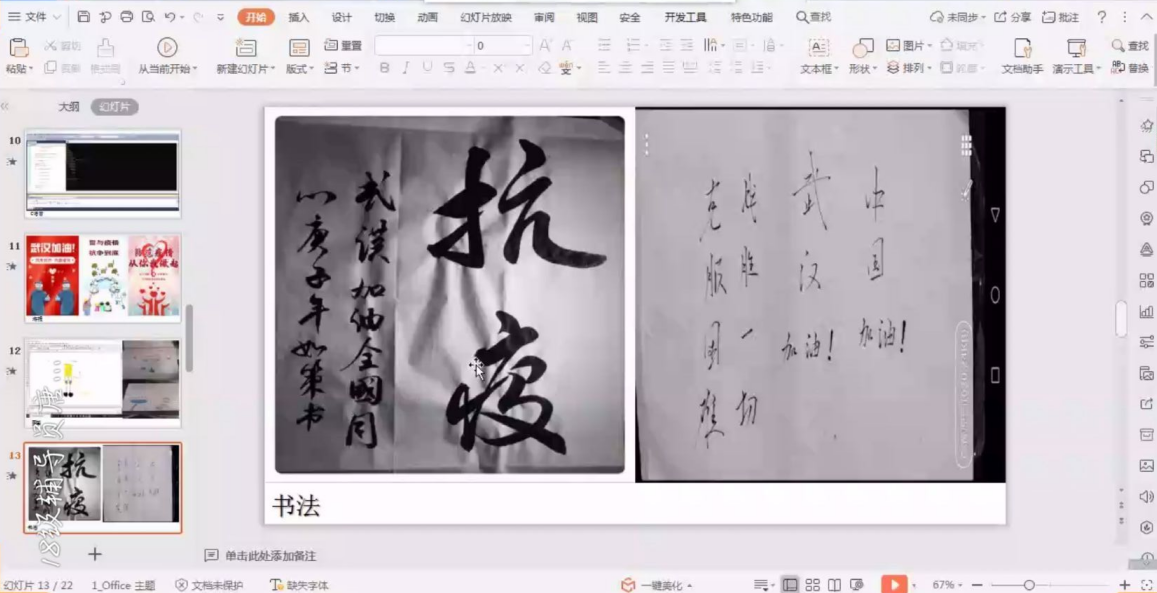 文件
开始 插入 设计 切换 动画 幻灯片放映 审阅 视图 安全 开发工具 特色功能 查找
未同步 分享 批注
粘贴 从当前开始 新建幻灯片 版式 重置 节
0
文本框 形状 图片 排列 填充 轮廓 文档助手 演示工具 查找 替换
大纲 幻灯片
10
11
武汉加油!
12
13
抗疫
武汉加油全國同
心庚子年如策书
中国加油!
武汉加油!
战胜一切
克服困难
书法
18级辅导
单击此处添加备注
幻灯片 13 / 22 1_Office 主题 文档未保护 缺失字体 一键美化 67%